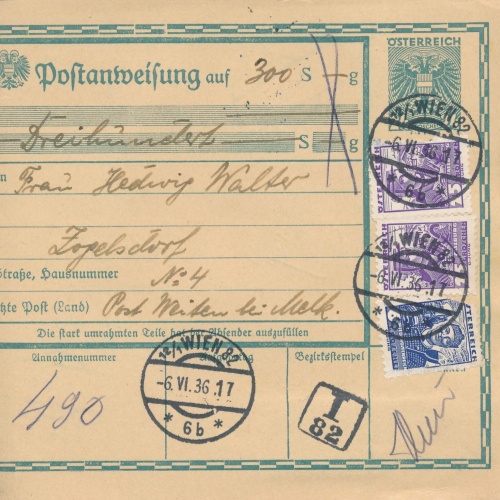 ÖSTERREICH
Postanweisung auf 300 S – g
Dreihundert S – g
n Frau Hedwig Walter
Zogelsdorf
Straße, Hausnummer No 4
tzte Post (Land) Post Weiten bei Melk.
Die start umrahmten Teile hat der Absender auszufüllen
Annahmenummer Bezirksstempel
490
12/1 WIEN 82
-6.VI.36.17
* 6b *
T
82
12/1 WIEN 82
-6.VI.36.17
6b *
12/1 WIEN 82
-6.VI.36.17
* 6b *
ÖSTERREICH